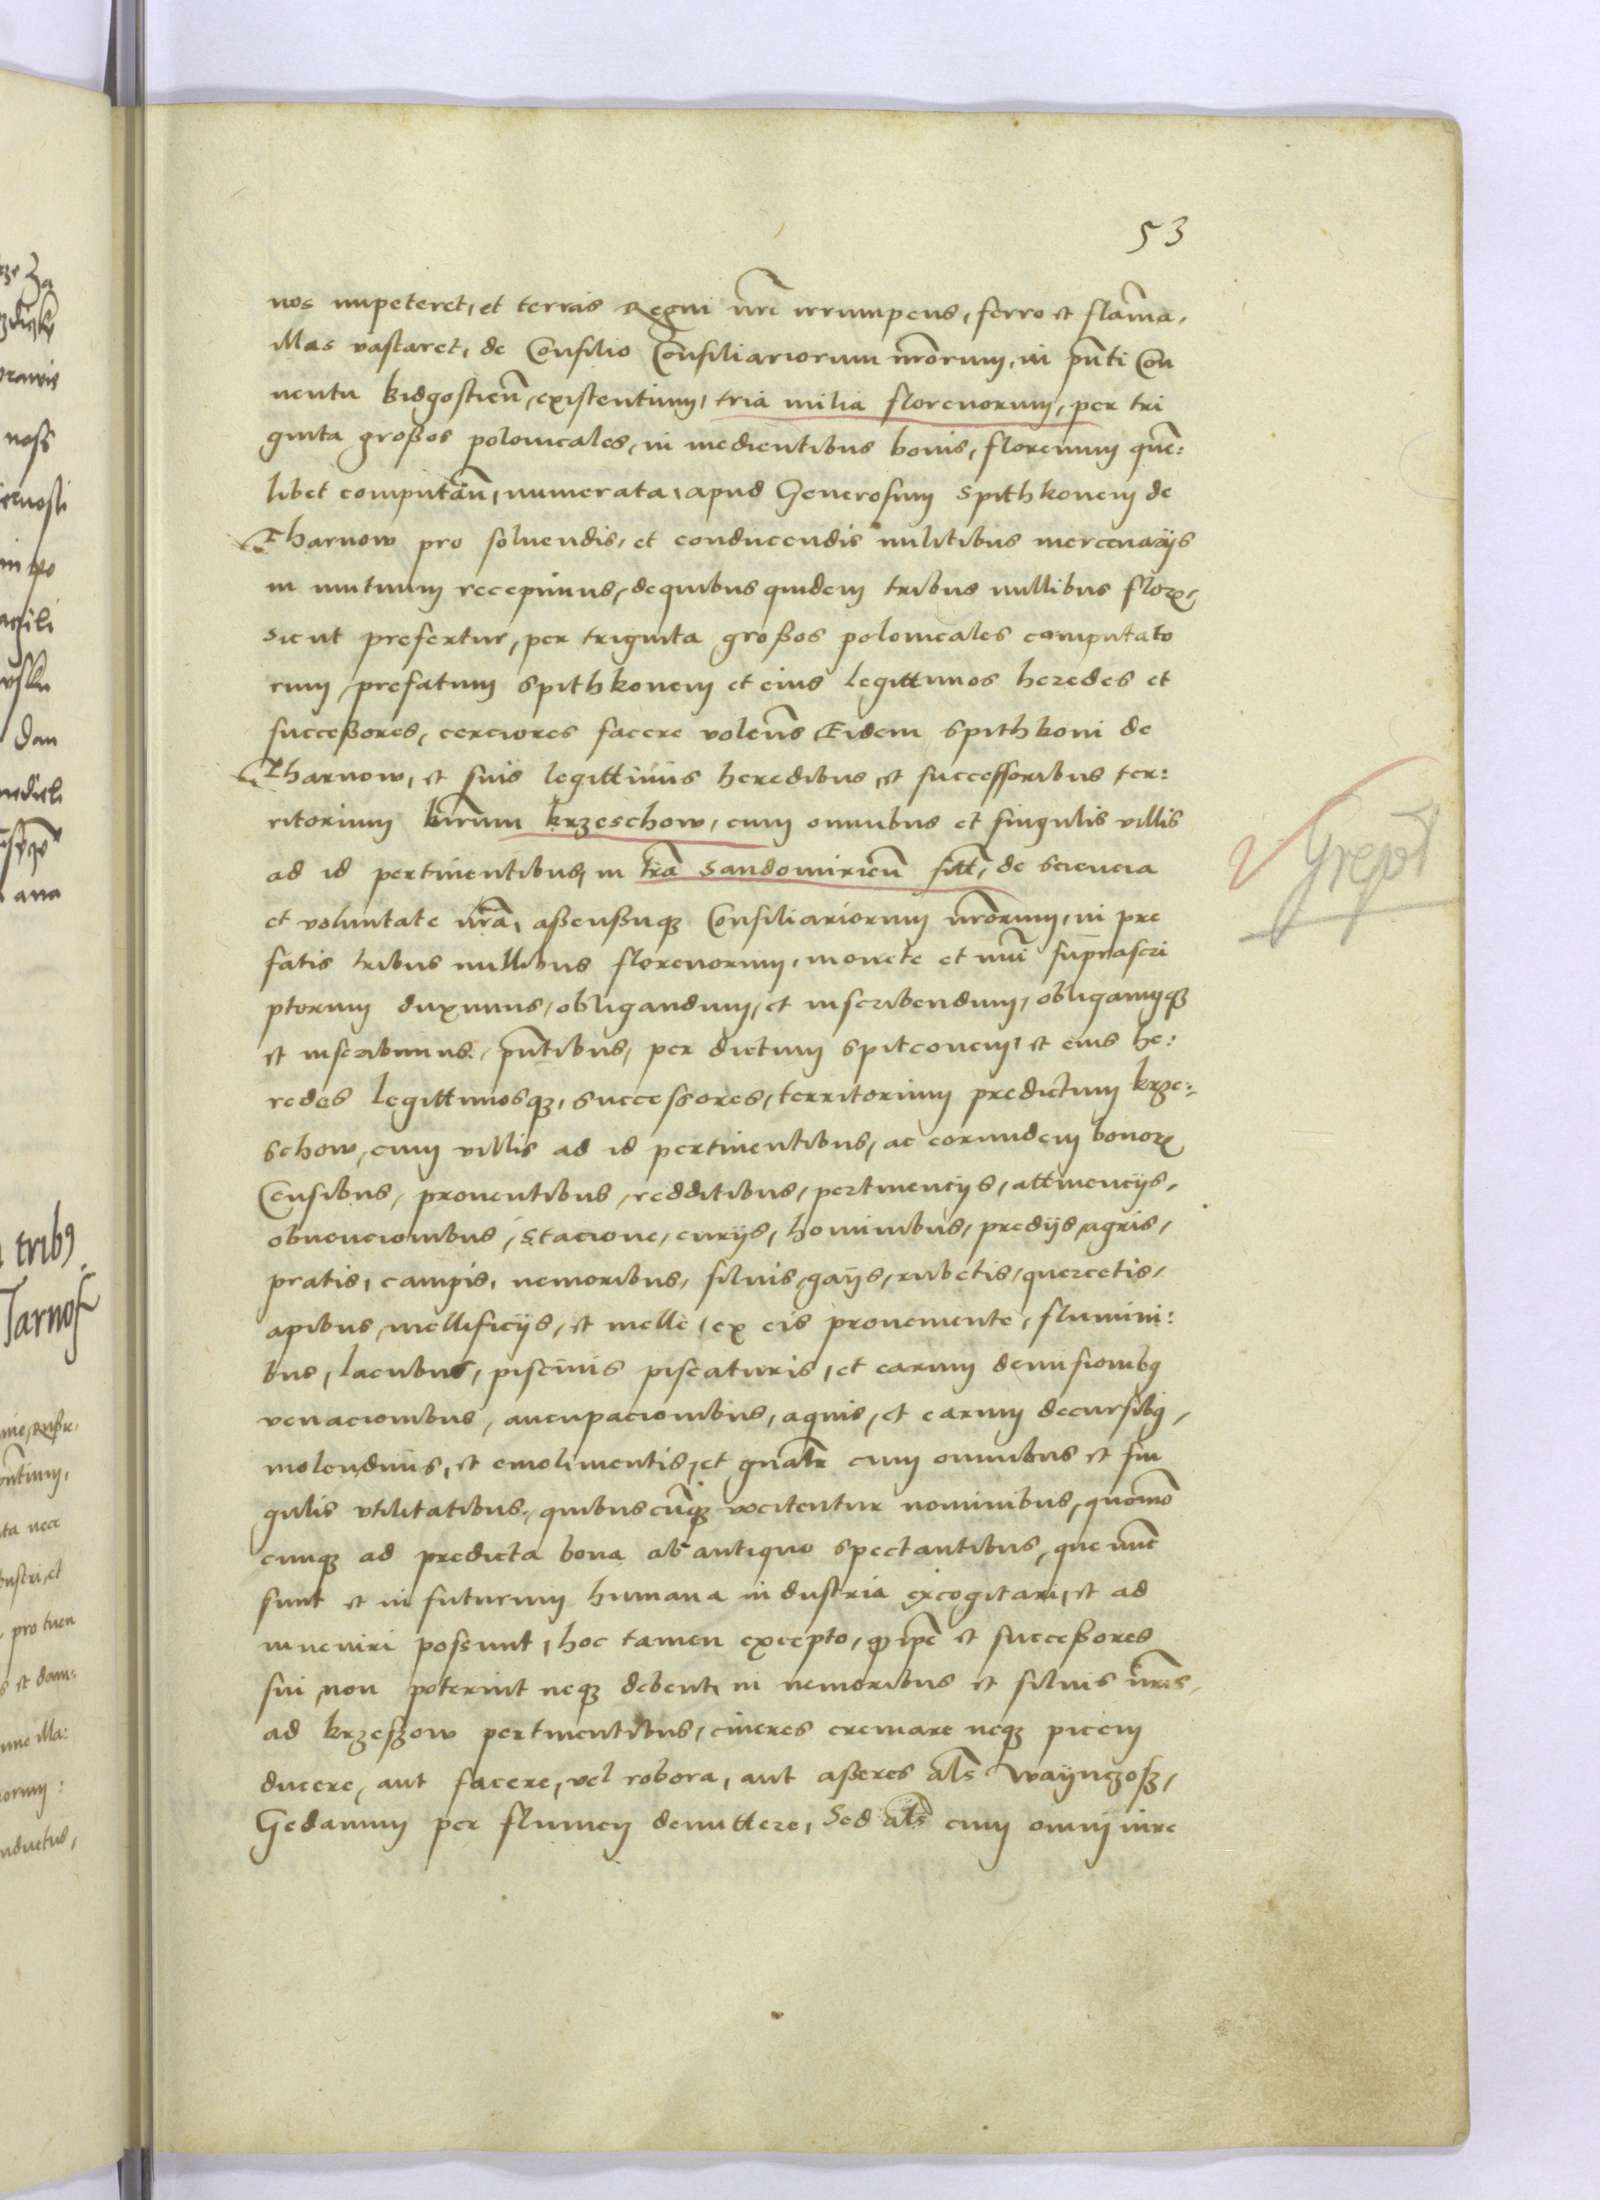 53
nos impeteret, et terras Regni nr̃i irrumpens, ferro et flam̃a,
illas vastaret, de Consilio Consiliariorum nr̃orum, in pñti Con
uentu bidgostieñ, existentium, tria milia florenorum, per tri
ginta großos polonicales, in medientibus bonis, florenum quẽ:
libet computañ, numerata, apud Generosum Spithkonem de
Tharnow pro soluendis, et conducendis militibus mercenarijs
in mutuum recepimus, de quibus quidem tribus millibus florꝝ,
sicut prefertur, per triginta großos polonicales computato
rum, prefatum Spithkonem et eius legittimos heredes et
succeßores, cerciores facere volens̃ Eidem Spithkoni de
Tharnow, et suis legittimis heredibus, et successoribus ter:
ritorium nr̃um krzeschow, cum omnibus et singulis villis
ad id pertinentibus, in tr̃a Sandomirieñ sitt̃, de sciencia
et voluntate nr̃a, aßenßuqꝫ Consiliariorum nr̃orum, in pre
fatis tribus millibus florenorum, monete et nũi suprascri
ptorum duximus, obligandum, et inscribendum, obligamusqꝫ
et inscribimus, pñtibus, per dictum Spitconem, et eius he:
redes legittimosqꝫ, successores, territorium predictum krze:
schow, cum villis ad id pertinentibus, ac eorundem bonorꝝ
Censibus, prouentibus, redditibus, pertinencijs, attinencijs,
obuencionibus, stacione, curijs, hominibus, predijs, agris,
pratis, campis, nemoribus, siluis, gaijs, rubetis, quercetis,
apibus, mellificijs, et melle, ex eis proueniente, flumini:
bus, lacubus, piscinis piscaturis, et earum demisionibꝯ
venacionibus, aucupacionibus, aquis, et earum decursibꝯ,
molendinis, et emolimentis, et gñalr̃ cum omnibus et sin
gulis vtilitatibus, quibuscũqꝫ vocitentur nominibus, quomõ
cunqꝫ ad predicta bona ab antiquo spectantibus, que nũc
sunt et in futurum humana industria excogitari, et ad
inueniri possunt, hoc tamen excepto, ꝙ ip̃e et succeßores
sui, non poterint neqꝫ debent, in nemoribus et siluis nr̃is,
ad krzeszow pertinentibus, cineres cremare neqꝫ picem
ducere, aut facere, vel robora, aut aßeres al̃s waynczoß,
Gedanum per flumen demittere, Sed al̃s cum omni iure